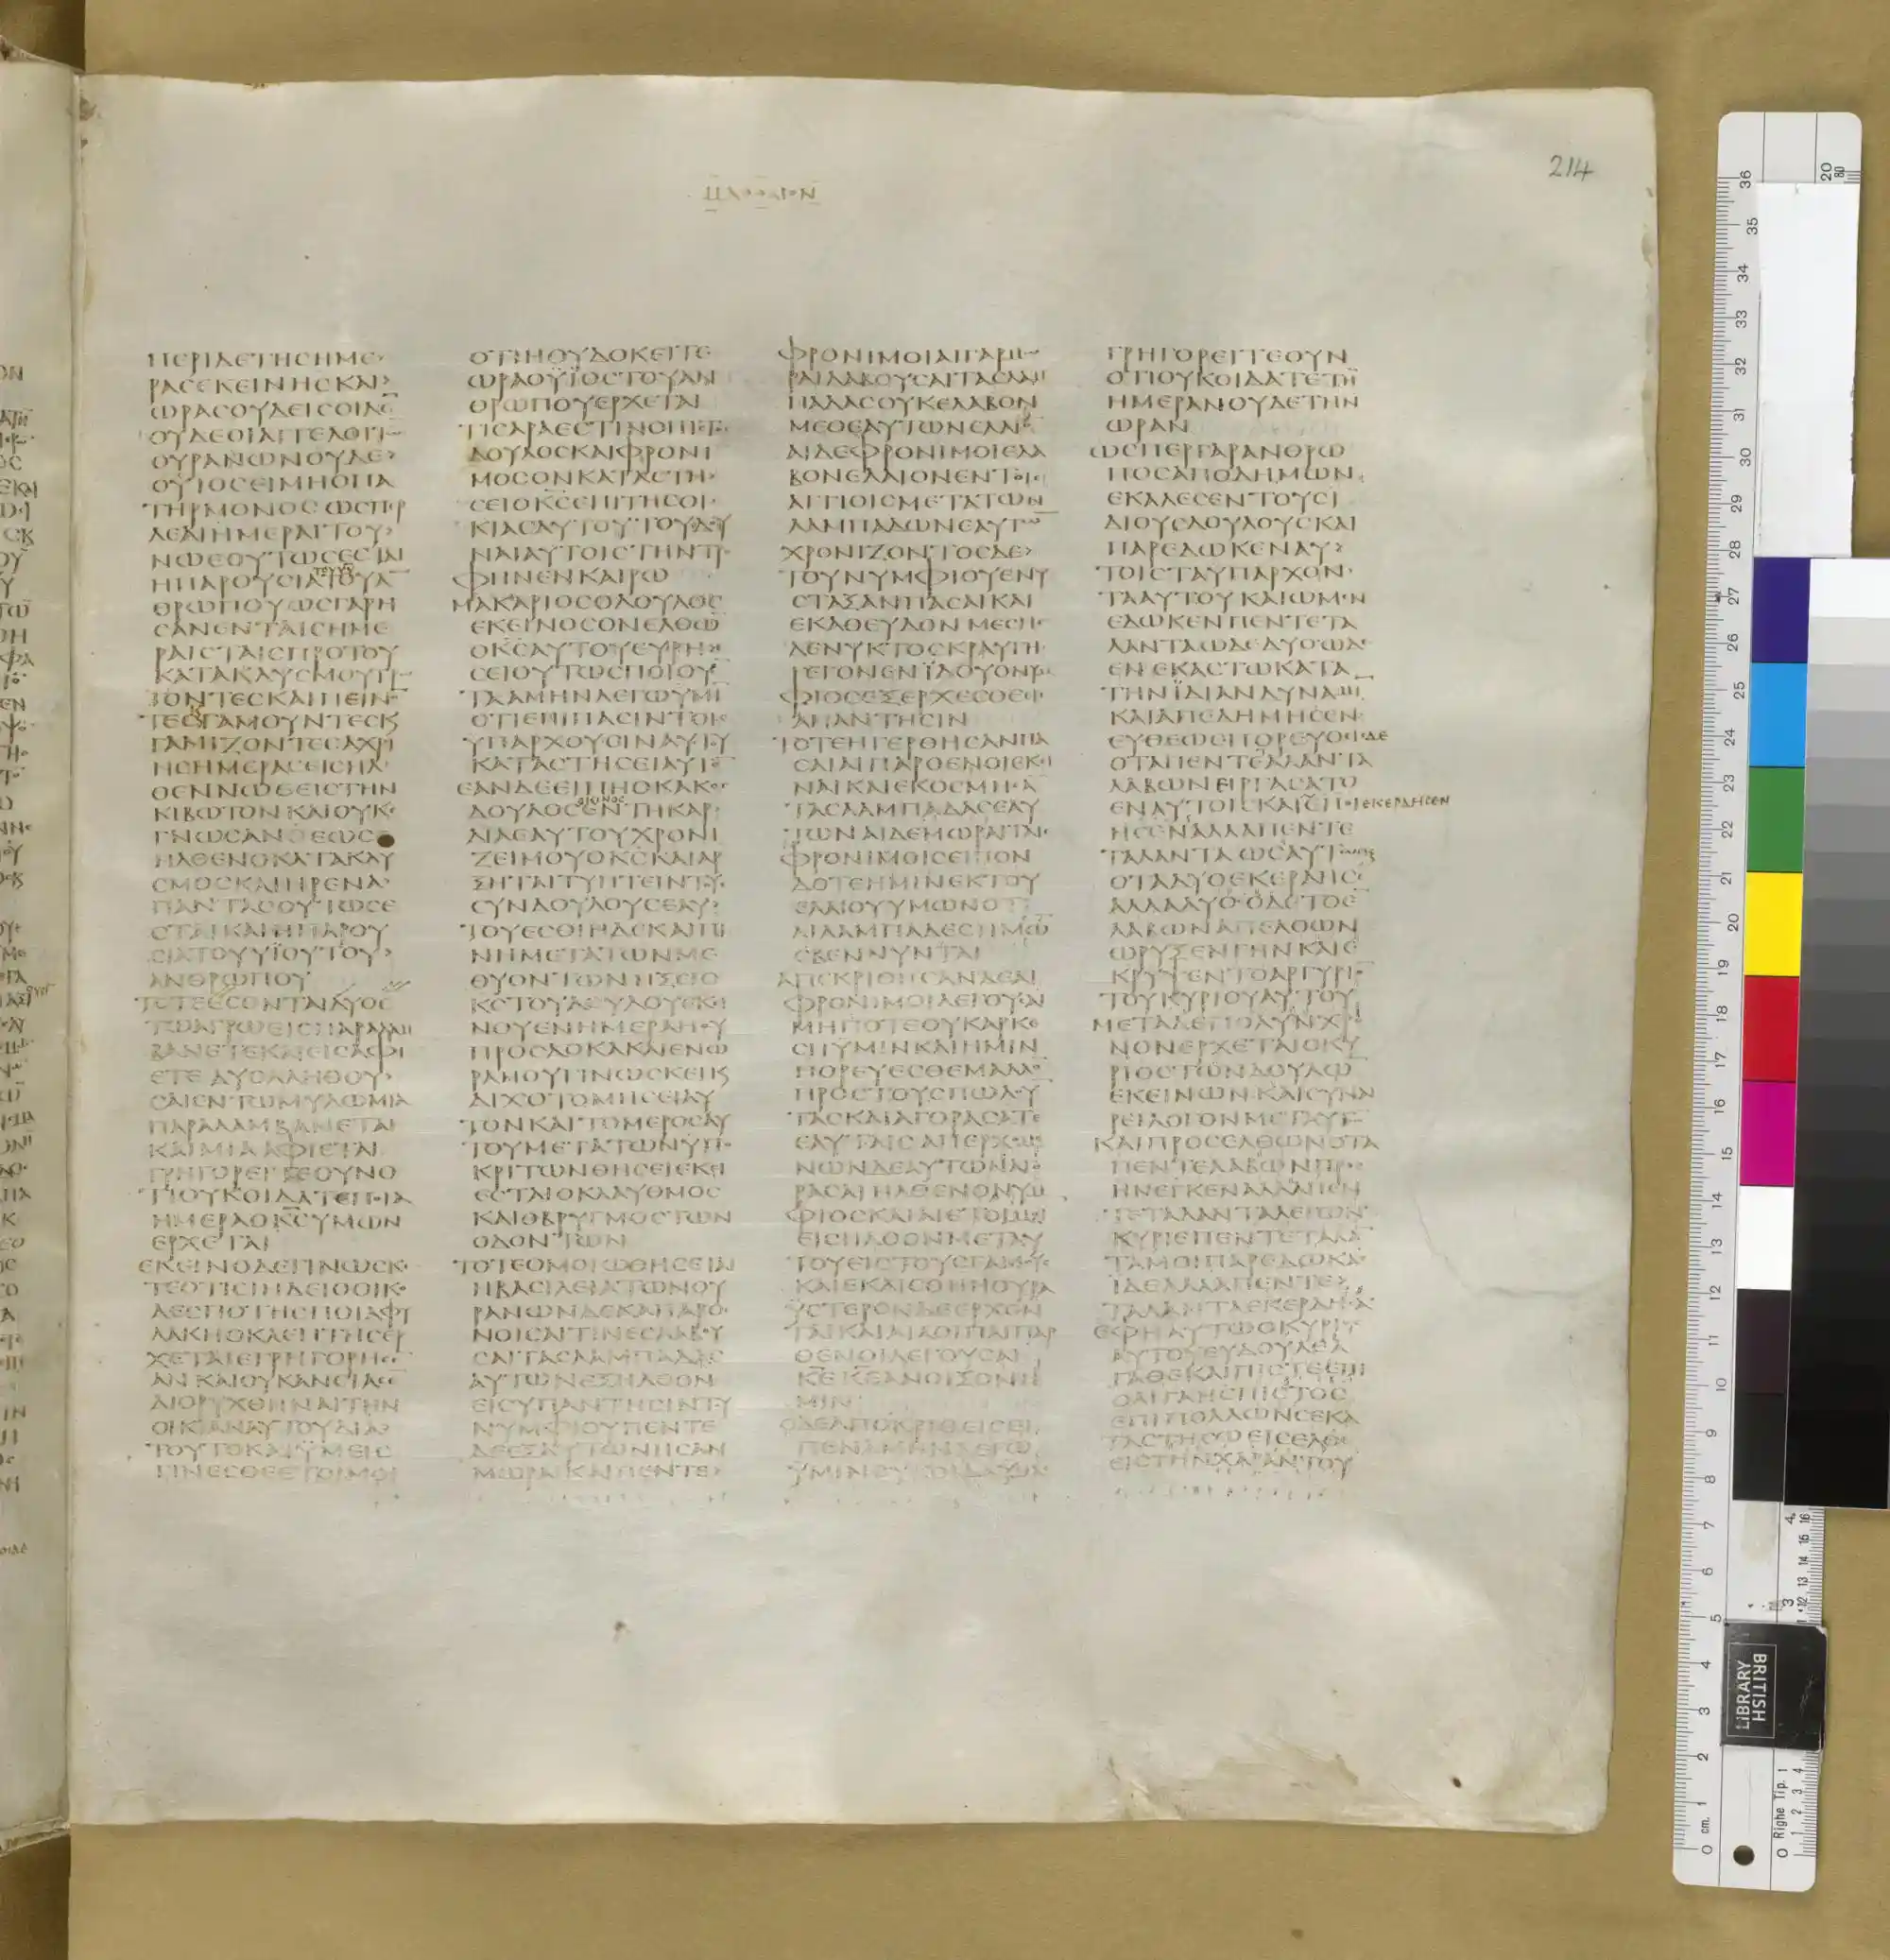 214
ΠΕΡΙΔΕΤΗϹΗΜΕ
ΡΑϹΕΚΕΙΝΗϹΚΑΙ
ΩΡΑϹΟΥΔΕΙϹΟΙΔΕ
ΟΥΔΕΟΙΑΓΓΕΛΟΙΤΩ
ΟΥΡΑΝΩΝΟΥΔΕ
ΟΥΙΟϹΕΙΜΗΟΠΑ
ΤΗΡΜΟΝΟϹΩϹΠΕΡ
ΔΕΑΙΗΜΕΡΑΙΤΟΥ
ΝΩΕΟΥΤΩϹΕϹΤΑΙ
ΗΠΑΡΟΥϹΙΑΤΟΥΑ
ΘΡΩΠΟΥΩϹΓΑΡΗ
ϹΑΝΕΝΤΑΙϹΗΜΕ
ΡΑΙϹΤΑΙϹΠΡΟΤΟΥ
ΚΑΤΑΚΛΥϹΜΟΥΤΡΩ
ΓΟΝΤΕϹΚΑΙΠΕΙΝΟ
ΤΕϹΓΑΜΟΥΝΤΕϹΚ
ΓΑΜΙΖΟΝΤΕϹΑΧΡΙ
ΗϹΗΜΕΡΑϹΕΙϹΗΛ
ΘΕΝΝΩΕΕΙϹΤΗΝ
ΚΙΒΩΤΟΝΚΑΙΟΥΚ
ΓΝΩϹΑΝΕΩϹ
ΗΛΘΕΝΟΚΑΤΑΚΛΥ
ϹΜΟϹΚΑΙΗΡΕΝΑ
ΠΑΝΤΑϹΟΥΤΩϹΕ
ϹΤΑΙΚΑΙΗΠΑΡΟΥ
ϹΙΑΤΟΥΥΪΟΥΤΟΥ
ΑΝΘΡΩΠΟΥ
ΤΟΤΕΕϹΟΝΤΑΙΔΥΟΕ
ΤΩΑΓΡΩΕΙϹΠΑΡΑΛΑΜ
ΒΑΝΕΤΕΚΑΙΕΙϹΑΦΙ
ΕΤΕΔΥΟΑΛΗΘΟΥ
ϹΑΙΕΝΤΩΜΥΛΩΜΙΑ
ΠΑΡΑΛΑΜΒΑΝΕΤΑΙ
ΚΑΙΜΙΑΑΦΙΕΤΑΙ
ΓΡΗΓΟΡΕΙΤΕΟΥΝΟ
ΤΙΟΥΚΟΙΔΑΤΕΠΟΙΑ
ΗΜΕΡΑΟΚϹΥΜΩΝ
ΕΡΧΕΤΑΙ
ΕΚΕΙΝΟΔΕΓΙΝΩϹΚΕ
ΤΕΟΤΙϹΙΗΔΕΙΟΟΙΚΟ
ΔΕϹΠΟΤΗϹΠΟΙΑΦΥ
ΛΑΚΗΟΚΛΕΠΤΗϹΕΡ
ΧΕΤΑΙΕΓΡΗΓΟΡΗϹΕ
ΑΝΚΑΙΟΥΚΑΝΕΙΑϹΕ
ΔΙΟΡΥΧΘΗΝΑΙΤΗΝ
ΟΙΚΙΑΝΑΥΤΟΥΔΙΑ
ΤΟΥΤΟΚΑΙΫΜΕΙϹ
ΓΙΝΕϹΘΕΕΤΟΙΜΟΙ
ΟΤΙΗΟΥΔΟΚΕΙΤΕ
ΩΡΑΟΫΪΟϹΤΟΥΑΝ
ΘΡΩΠΟΥΕΡΧΕΤΑΙ
ΤΙϹΑΡΑΕϹΤΙΝΟΠΙϹΤΟϹ
ΔΟΥΛΟϹΚΑΙΦΡΟΝΙ
ΜΟϹΟΝΚΑΤΑϹΤΗ
ϹΕΙΟΚϹΕΠΙΤΗϹΟΙ
ΚΙΑϹΑΥΤΟΥΤΟΥΔΟΥ
ΝΑΙΑΥΤΟΙϹΤΗΝΤΡΟ
ΦΗΝΕΝΚΑΙΡΩ
ΜΑΚΑΡΙΟϹΟΔΟΥΛΟϹ
ΕΚΕΙΝΟϹΟΝΕΛΘΩ
ΟΚϹΑΥΤΟΥΕΥΡΗ
ϹΕΙΟΥΤΩϹΠΟΙΟΥ
ΤΑΑΜΗΝΛΕΓΩΥΜΙ
ΟΤΙΕΠΙΠΑϹΙΝΤΟΙϹ
ΥΠΑΡΧΟΥϹΙΝΑΥΤΟΥ
ΚΑΤΑϹΤΗϹΕΙΑΥΤΟ
ΕΑΝΔΕΕΙΠΗΟΚΑΚΟϹ
ΔΟΥΛΟϹΕΝΤΗΚΑΡ
ΔΙΑΕΑΥΤΟΥΧΡΟΝΙ
ΖΕΙΜΟΥΟΚϹΚΑΙΑΡ
ΞΗΤΑΙΤΥΠΤΕΙΝΤΟΥϹ
ϹΥΝΔΟΥΛΟΥϹΕΑΥ
ΤΟΥΕϹΘΙΗΔΕΚΑΙΠΙ
ΝΗΜΕΤΑΤΩΝΜΕ
ΘΥΟΝΤΩΝΗΞΕΙΟ
ΚϹΤΟΥΔΟΥΛΟΥΕΚΕΙ
ΝΟΥΕΝΗΜΕΡΑΗΟΥ
ΠΡΟϹΔΟΚΑΚΑΙΕΝΩ
ΡΑΗΟΥΓΙΝΩϹΚΕΙΚ
ΔΙΧΟΤΟΜΗϹΕΙΑΥ
ΤΟΝΚΑΙΤΟΜΕΡΟϹΑΥ
ΤΟΥΜΕΤΑΤΩΝΥΠΟ
ΚΡΙΤΩΝΘΗϹΕΙΕΚΕΙ
ΕϹΤΑΙΟΚΛΑΥΘΜΟϹ
ΚΑΙΟΒΡΥΓΜΟϹΤΩΝ
ΟΔΟΝΤΩΝ
ΤΟΤΕΟΜΟΙΩΘΗϹΕΤΑΙ
ΗΒΑϹΙΛΕΙΑΤΩΝΟΥ
ΡΑΝΩΝΔΕΚΑΠΑΡΘΕ
ΝΟΙϹΑΙΤΙΝΕϹΛΑΒΟΥ
ϹΑΙΤΑϹΛΑΜΠΑΔΑϹ
ΑΥΤΩΝΕΞΗΛΘΟΝ
ΕΙϹΥΠΑΝΤΗϹΙΝΤΟΥ
ΝΥΜΦΙΟΥΠΕΝΤΕ
ΔΕΕΞΑΥΤΩΝΗϹΑΝ
ΜΩΡΑΙΚΑΙΠΕΝΤΕ
ΦΡΟΝΙΜΟΙΑΙΓΑΡΜΩ
ΡΑΙΛΑΒΟΥϹΑΙΤΑϹΛΑΜ
ΠΑΔΑϹΟΥΚΕΛΑΒΟΝ
ΜΕΘΕΑΥΤΩΝΕΛΑΙΟ
ΑΙΔΕΦΡΟΝΙΜΟΙΕΛΑ
ΒΟΝΕΛΑΙΟΝΕΝΤΟΙϹ
ΑΓΓΙΟΙϹΜΕΤΑΤΩΝ
ΛΑΜΠΑΔΩΝΕΑΥΤΩ
ΧΡΟΝΙΖΟΝΤΟϹΔΕ
ΤΟΥΝΥΜΦΙΟΥΕΝΥ
ϹΤΑΞΑΝΠΑϹΑΙΚΑΙ
ΕΚΑΘΕΥΔΟΝΜΕϹΗϹ
ΔΕΝΥΚΤΟϹΚΡΑΥΓΗ
ΓΕΓΟΝΕΝΪΔΟΥΟΝΥΜ
ΦΙΟϹΕΞΕΡΧΕϹΘΕΕΙϹ
ΑΠΑΝΤΗϹΙΝ
ΤΟΤΕΗΓΕΡΘΗϹΑΝΠΑ
ϹΑΙΑΙΠΑΡΘΕΝΟΙΕΚΕΙ
ΝΑΙΚΑΙΕΚΟϹΜΗϹΑ
ΤΑϹΛΑΜΠΑΔΑϹΕΑΥ
ΤΩΝΑΙΔΕΜΩΡΑΙΤΑΙϹ
ΦΡΟΝΙΜΟΙϹΕΙΠΟΝ
ΔΟΤΕΗΜΙΝΕΚΤΟΥ
ΕΛΑΙΟΥΥΜΩΝΟΤΙ
ΑΙΛΑΜΠΑΔΕϹΗΜΩ
ϹΒΕΝΝΥΝΤΑΙ
ΑΠΕΚΡΙΘΗϹΑΝΔΕΑΙ
ΦΡΟΝΙΜΟΙΛΕΓΟΥϹΑΙ
ΜΗΠΟΤΕΟΥΚΑΡΚΕ
ϹΗΥΜΙΝΚΑΙΗΜΙΝ
ΠΟΡΕΥΕϹΘΕΜΑΛΛΟ
ΠΡΟϹΤΟΥϹΠΩΛΟΥ
ΤΑϹΚΑΙΑΓΟΡΑϹΑΤΕ
ΕΑΥΤΑΙϹΑΠΕΡΧΟΜΕ
ΝΩΝΔΕΑΥΤΩΝΑΓΟ
ΡΑϹΑΙΗΛΘΕΝΟΝΥΜ
ΦΙΟϹΚΑΙΑΙΕΤΟΙΜΟΙ
ΕΙϹΗΛΘΟΝΜΕΤΑΥ
ΤΟΥΕΙϹΤΟΥϹΓΑΜΟΥϹ
ΚΑΙΕΚΛΙϹΘΗΗΘΥΡΑ
ΫϹΤΕΡΟΝΔΕΕΡΧΟΝ
ΤΑΙΚΑΙΑΙΛΟΙΠΑΙΠΑΡ
ΘΕΝΟΙΛΕΓΟΥϹΑΙ
ΚΕΚΕΑΝΟΙΞΟΝΗ
ΜΙΝ
ΟΔΕΑΠΟΚΡΙΘΕΙϹΕΙ
ΠΕΝΑΜΗΝΛΕΓΩ
ΫΜΙΝΟΥΚΟΙΔΑΥΜΑϹ
ΓΡΗΓΟΡΕΙΤΕΟΥΝ
ΟΤΙΟΥΚΟΙΔΑΤΕΤΗ
ΗΜΕΡΑΝΟΥΔΕΤΗΝ
ΩΡΑΝ
ΩϹΠΕΡΓΑΡΑΝΘΡΩ
ΠΟϹΑΠΟΔΗΜΩΝ
ΕΚΑΛΕϹΕΝΤΟΥϹΙ
ΔΙΟΥϹΔΟΥΛΟΥϹΚΑΙ
ΠΑΡΕΔΩΚΕΝΑΥ
ΤΟΙϹΤΑΥΠΑΡΧΟΝ
ΤΑΑΥΤΟΥΚΑΙΩΜΕΝ
ΕΔΩΚΕΝΠΕΝΤΕΤΑ
ΛΑΝΤΑΩΔΕΔΥΟΩΔΕ
ΕΝΕΚΑϹΤΩΚΑΤΑ
ΤΗΝΪΔΙΑΝΔΥΝΑΜΙ
ΚΑΙΑΠΕΔΗΜΗϹΕΝ
ΕΥΘΕΩϹΠΟΡΕΥΘΙϹΔΕ
ΟΤΑΠΕΝΤΕΤΑΛΑΝΤΑ
ΛΑΒΩΝΕΙΡΓΑϹΑΤΟ
ΕΝΑΥΤΟΙϹΚΑΙΕΠΟΙΕΚΕΡΔΗϹΕΝ
ΗϹΕΝΑΛΛΑΠΕΝΤΕ
ΤΑΛΑΝΤΑΩϹΑΥΤΩϹ
ΟΤΑΔΥΟΕΚΕΡΔΗϹΕ
ΑΛΛΑΔΥΟΟΔΕΤΟΕ
ΛΑΒΩΝΑΠΕΛΘΩΝ
ΩΡΥΞΕΝΓΗΝΚΑΙΕ
ΚΡΥΨΕΝΤΟΑΡΓΥΡΙΟ
ΤΟΥΚΥΡΙΟΥΑΥΤΟΥ
ΜΕΤΑΔΕΠΟΛΥΝΧΡΟ
ΝΟΝΕΡΧΕΤΑΙΟΚΥ
ΡΙΟϹΤΩΝΔΟΥΛΩ
ΕΚΕΙΝΩΝΚΑΙϹΥΝΑ
ΡΕΙΛΟΓΟΝΜΕΤΑΥΤΩ
ΚΑΙΠΡΟϹΕΛΘΩΝΟΤΑ
ΠΕΝΤΕΛΑΒΩΝΠΡΟϹ
ΗΝΕΓΚΕΝΑΛΛΑΠΕΝ
ΤΕΤΑΛΑΝΤΑΛΕΓΩΝ
ΚΥΡΙΕΠΕΝΤΕΤΑΛΑ
ΤΑΜΟΙΠΑΡΕΔΩΚΑϹ
ΪΔΕΑΛΛΑΠΕΝΤΕ
ΤΑΛΑΝΤΑΕΚΕΡΔΗϹΑ
ΕΦΗΑΥΤΩΟΚΥΡΙΟϹ
ΑΥΤΟΥΕΥΔΟΥΛΕΑ
ΓΑΘΕΚΑΙΠΙϹΤΕΕΠΙ
ΟΛΙΓΑΗϹΠΙϹΤΟϹ
ΕΠΙΠΟΛΛΩΝϹΕΚΑ
ΤΑϹΤΗϹΩΕΙϹΕΛΘΕ
ΕΙϹΤΗΝΧΑΡΑΝΤΟΥ
BRITISH
LIBRARY